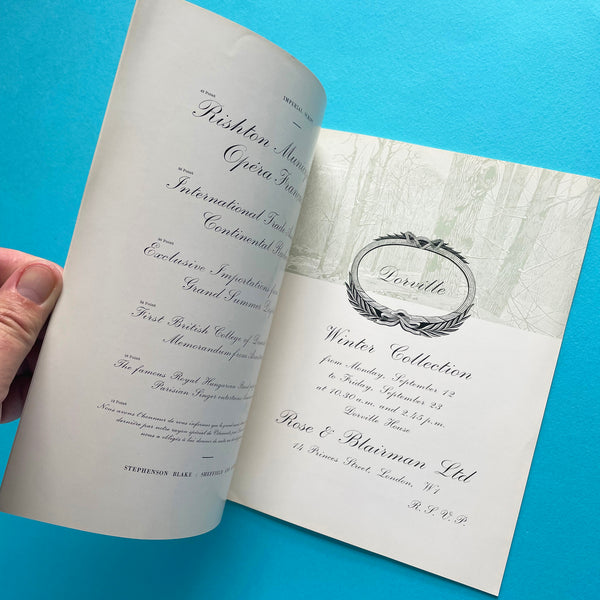 48 POINT
IMPERIAL SCRIPT
Rishton
Opéra
36 POINT
International Trade
Continental
30 POINT
Exclusive Importations from
Grand Summer
24 POINT
First British College of
Memorandum from
18 POINT
The famous Royal Hungarian Band
Parisian Singer
12 POINT
Nous avons l'honneur de vous informer que
dernière par notre rayon spécial de
nous a obligés à
STEPHENSON BLAKE : SHEFFIELD
Dorville
Winter Collection
from Monday, September 12
to Friday, September 23
at 10.30 a.m. and 2.45 p.m.
Dorville House
Rose & Blairman Ltd
14 Princes Street, London, W1
R.S.V.P.